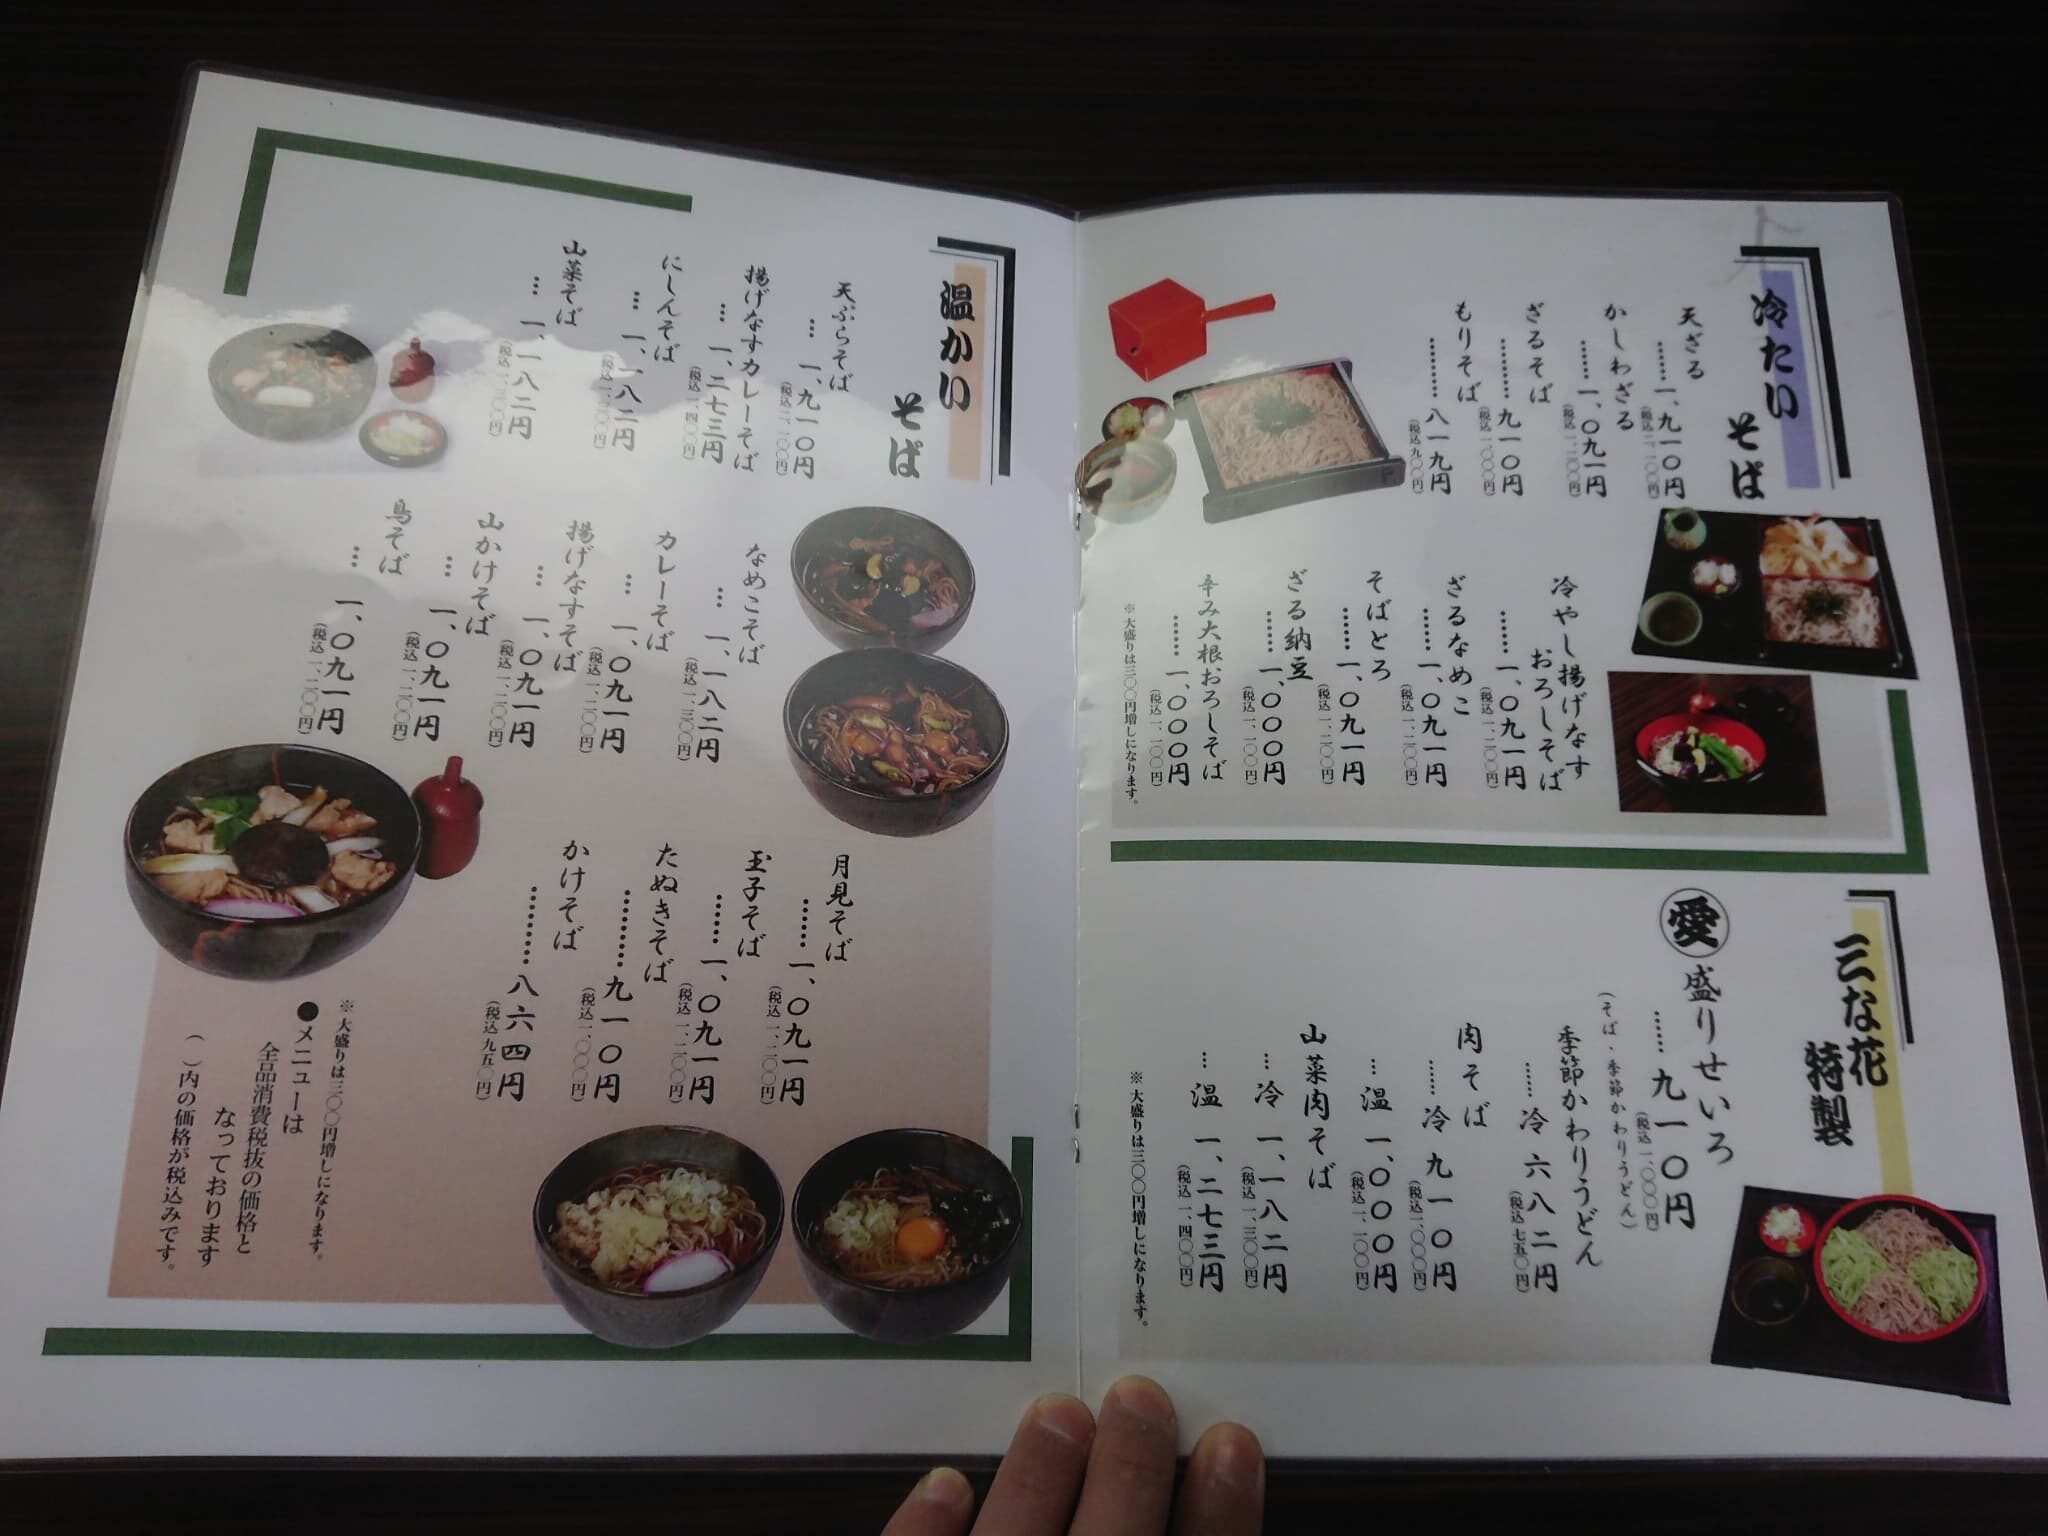 冷たい
そば
天ざる
……一、九一〇円
（税込二、一〇〇円）
かしわざる
……一、〇九一円
（税込一、二〇〇円）
ざるそば
………九一〇円
（税込一、〇〇〇円）
もりそば
………八一九円
（税込九〇〇円）
冷やし揚げなす
おろしそば
……一、〇九一円
（税込一、二〇〇円）
ざるなめこ
……一、〇九一円
（税込一、二〇〇円）
そばとろ
……一、〇九一円
（税込一、二〇〇円）
ざる納豆
……一、〇〇〇円
（税込一、一〇〇円）
辛み大根おろしそば
……一、〇〇〇円
（税込一、一〇〇円）
※大盛りは三〇〇円増しになります。
三な花
特製
愛盛りせいろ
……九一〇円
（税込一、〇〇〇円）
（そば・季節かわりうどん）
季節かわりうどん
……冷 六八二円
（税込七五〇円）
肉そば
……冷 九一〇円
（税込一、〇〇〇円）
…温 一、〇〇〇円
（税込一、一〇〇円）
山菜肉そば
…冷 一、一八二円
（税込一、三〇〇円）
…温 一、二七三円
（税込一、四〇〇円）
※大盛りは三〇〇円増しになります。
温かい
そば
天ぷらそば
…一、九一〇円
（税込二、一〇〇円）
揚げなすカレーそば
…一、二七三円
（税込一、四〇〇円）
にしんそば
…一、一八二円
（税込一、三〇〇円）
山菜そば
…一、一八二円
（税込一、三〇〇円）
なめこそば
…一、一八二円
（税込一、三〇〇円）
カレーそば
…一、〇九一円
（税込一、二〇〇円）
揚げなすそば
…一、〇九一円
（税込一、二〇〇円）
山かけそば
…一、〇九一円
（税込一、二〇〇円）
鳥そば
…一、〇九一円
（税込一、二〇〇円）
月見そば
……一、〇九一円
（税込一、二〇〇円）
玉子そば
……一、〇九一円
（税込一、二〇〇円）
たぬきそば
………九一〇円
（税込一、〇〇〇円）
かけそば
………八六四円
（税込九五〇円）
※大盛りは三〇〇円増しになります。
●メニューは
全品消費税抜の価格と
なっております
（ ）内の価格が税込みです。